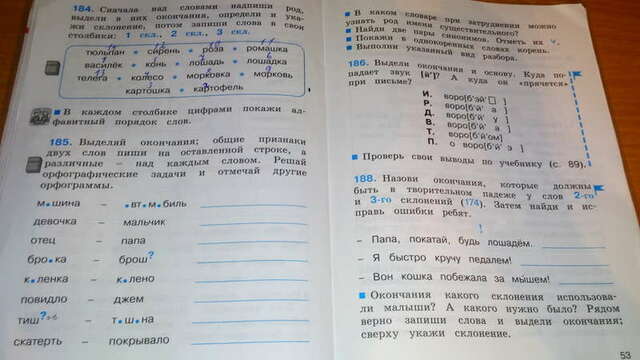 184. Сначала над словами надпиши род,
выдели в них окончания, определи и ука-
жи склонение, потом запиши слова в свои
столбики: 1 скл., 2 скл., 3 скл.
тюльпан • сирень • роза • ромашка
василёк • конь • лошадь • лошадка
телега • колесо • морковка • морковь
картошка • картофель
В каждом столбике цифрами покажи ал-
фавитный порядок слов.
185. Выделяй окончания; общие признаки
двух слов пиши на оставленной строке, а
различные – над каждым словом. Решай
орфографические задачи и отмечай другие
орфограммы.
м•шина – •вт•м•биль
девочка – мальчик
отец – папа
бро•ка – брош?
к•ленка – к•лено
повидло – джем
тиш? – т•ш•на
скатерть – покрывало
В каком словаре при затруднении можно
узнать род имени существительного?
Найди две пары синонимов. Отметь их v.
Покажи в однокоренных словах корень.
Выполни указанный вид разбора.
186. Выдели окончание и основу. Куда по-
падает звук [й']? А куда он «прячется»
при письме?
И. воро[б'эй'□ ]
Р. воро[б'й' а ]
Д. воро[б'й' у ]
В. воро[б'й' а ]
Т. воро[б'й'ом]
П. о воро[б'й' э ]
Проверь свои выводы по учебнику (с. 89).
188. Назови окончания, которые должны
быть в творительном падеже у слов 2-го
и 3-го склонений (174). Затем найди и ис-
правь ошибки ребят.
!
– Папа, покатай, будь лошадём.
– Я быстро кручу педалем!
– Вон кошка побежала за мышем!
Окончания какого склонения использова-
ли малыши? А какого нужно было? Рядом
верно запиши слова и выдели окончания;
сверху укажи склонение.
53